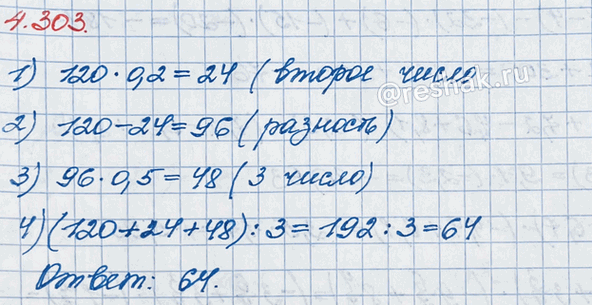 4.303.
1) 120 · 0,2 = 24 ( второе число
@reshak.ru
2) 120 - 24 = 96 ( разность)
3) 96 · 0,5 = 48 ( 3 число)
4) (120 + 24 + 48) : 3 = 192 : 3 = 64
Ответ: 64.